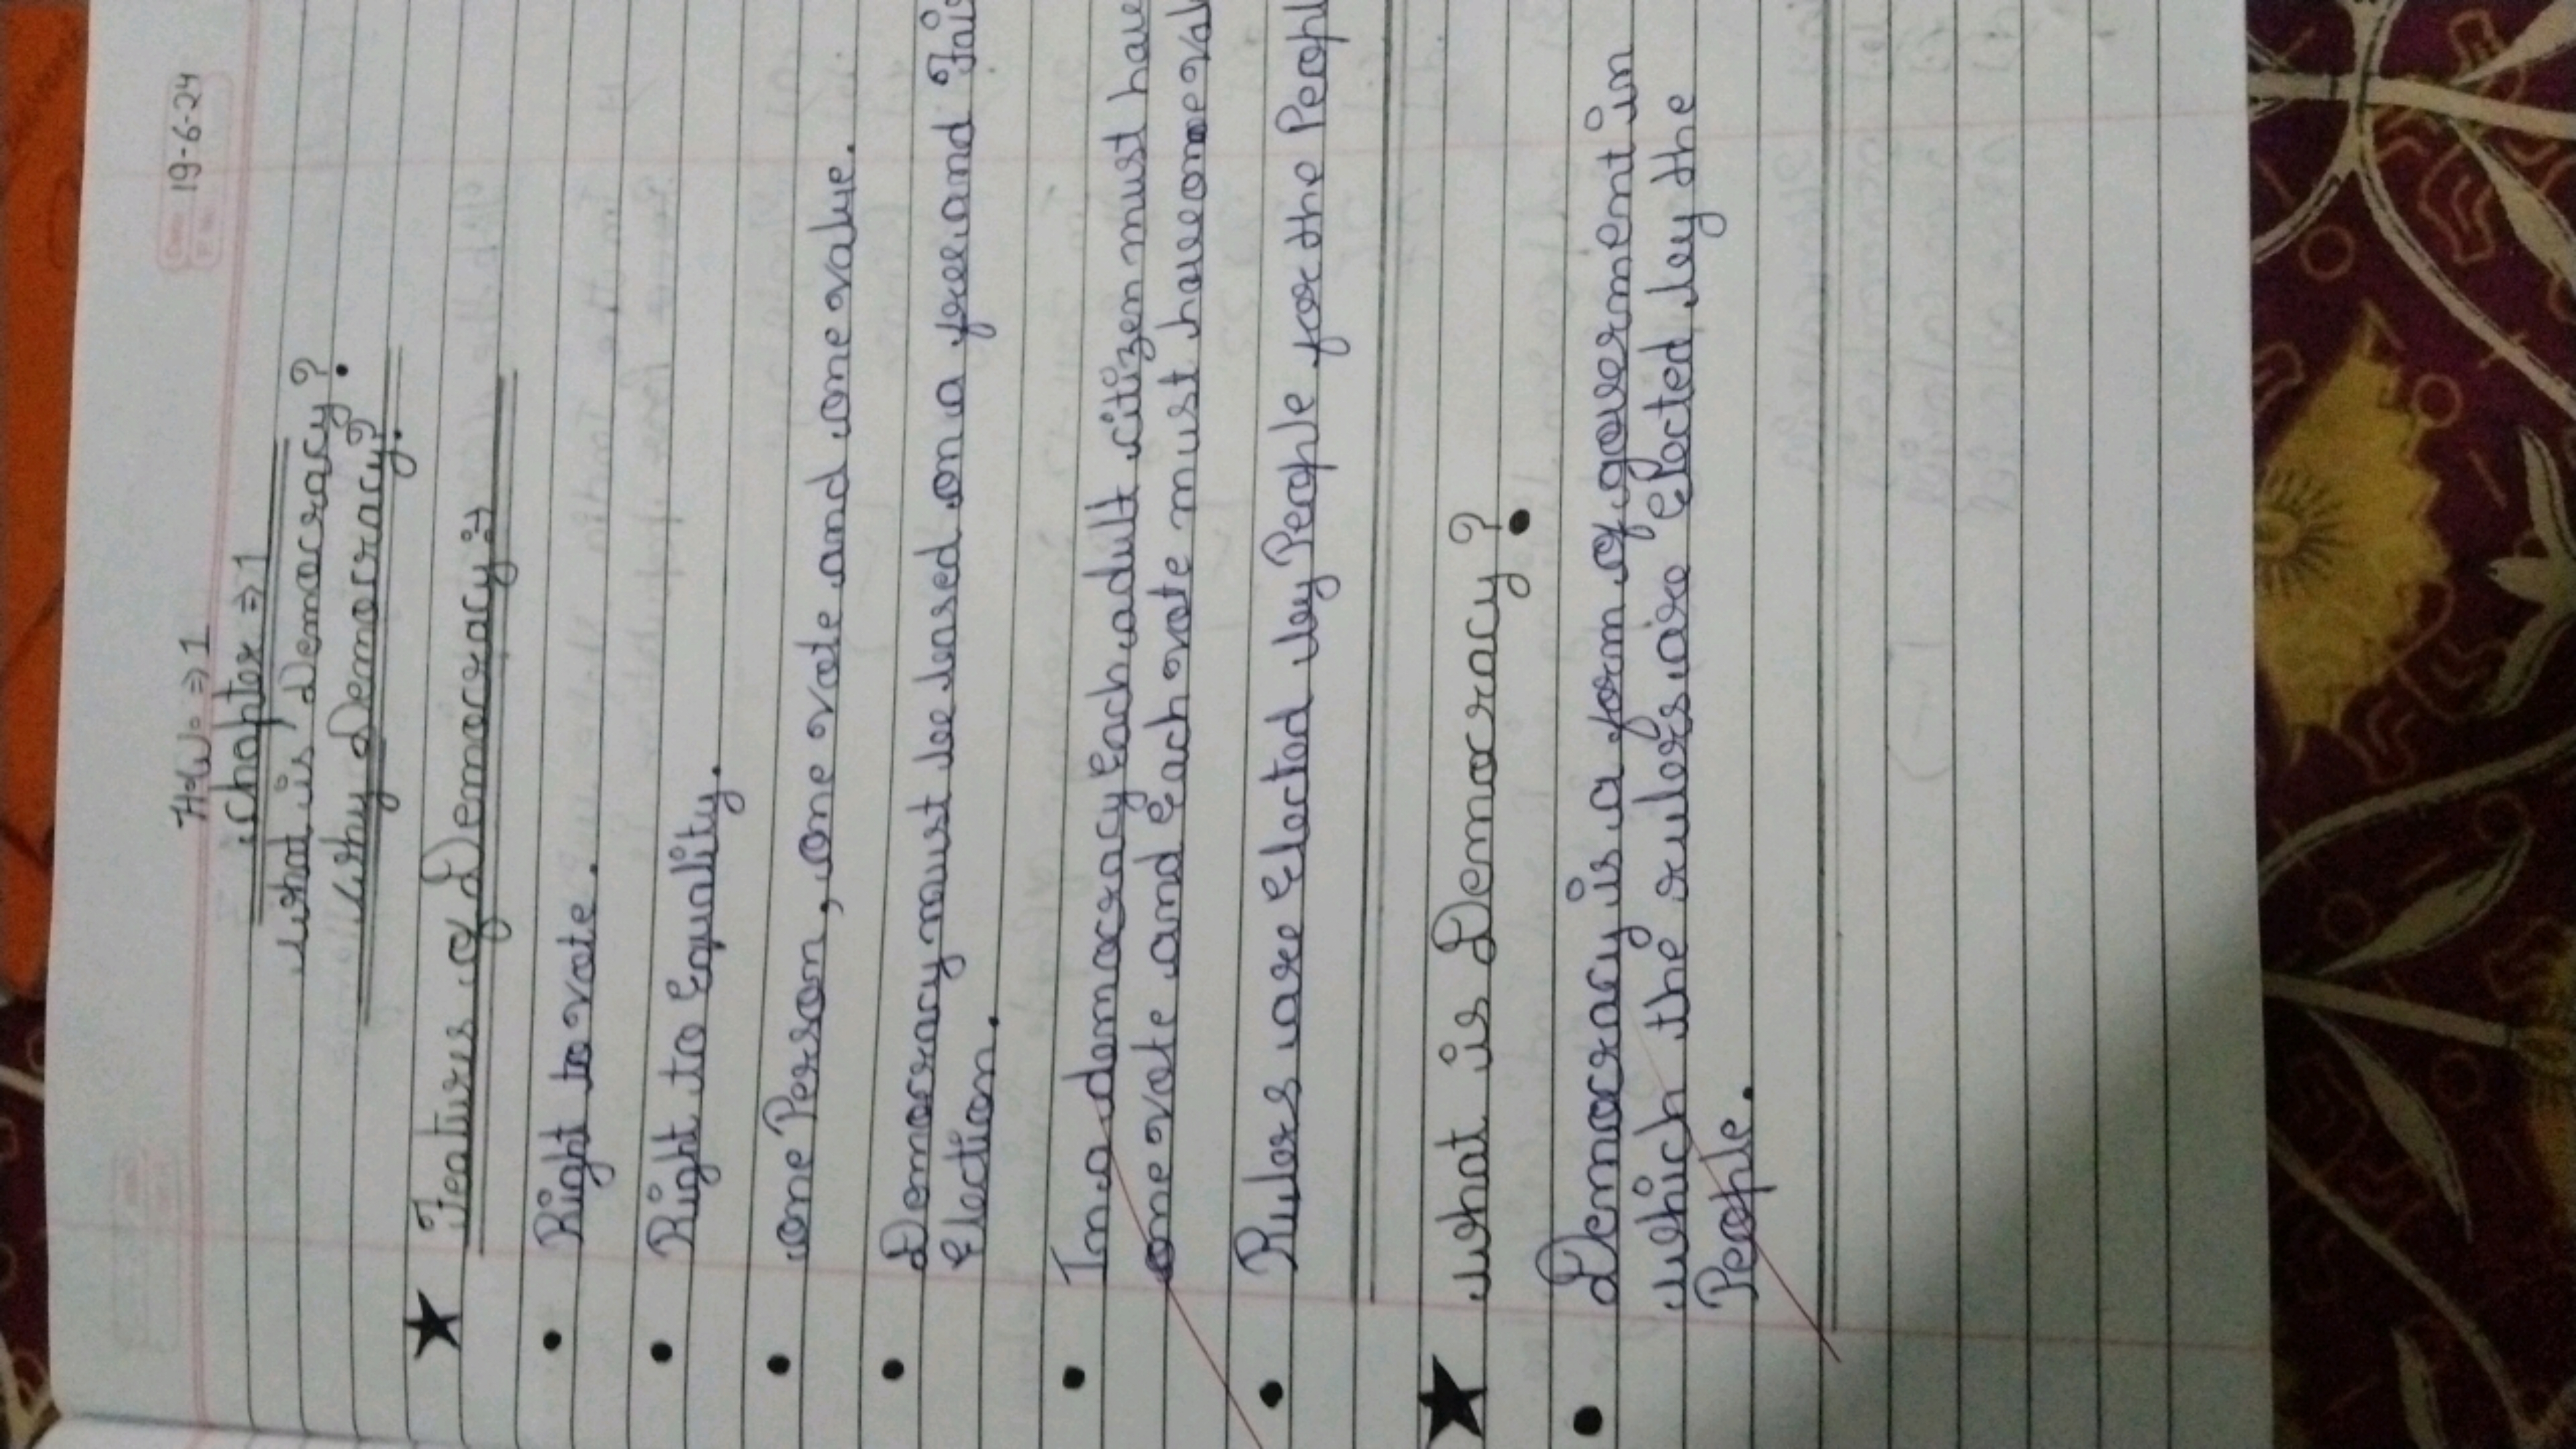 19-6-24
H.W. ⇒ 1
Chapter ⇒ 1
what is Democracy?
Why Democracy?
★ Features of Democracy :→
• Right to vote.
• Right to Equality.
• one Person, one vote and one value.
• Democracy must be based on a free and Fair
Election.
• In a democracy Each adult citizen must have
one vote and Each vote must have one val
• Rulers are Elected by People for the Peopl
★ what is Democracy?
• Democracy is a form of government in
which the rulers are Elected by the
People.